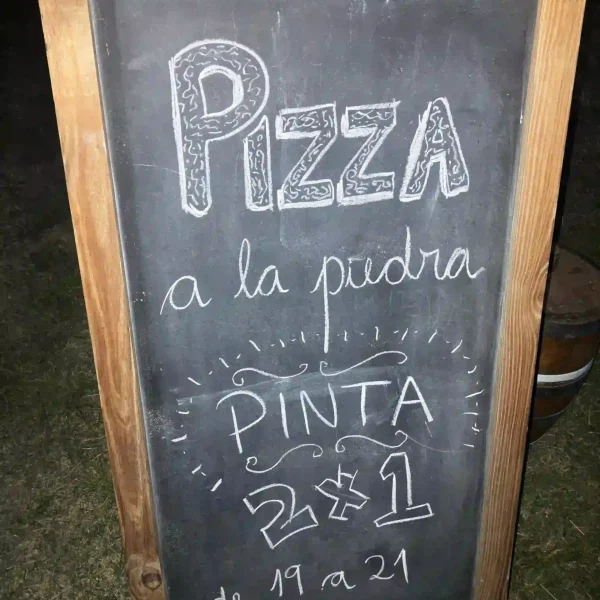 PIZZA
a la piedra
PINTA
2x1
de 19 a 21